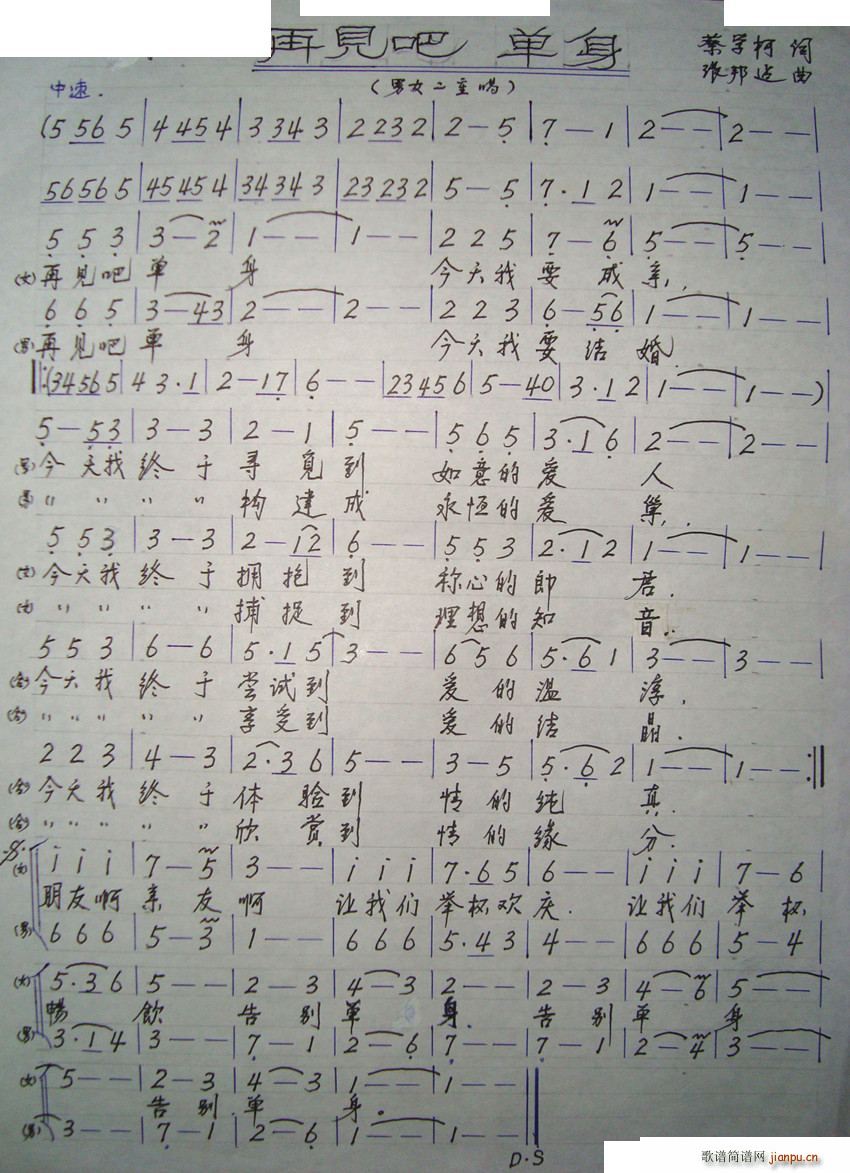 再見吧 单身
蔡学柯 词
张邦 曲
中速.
(男女二重唱)
(5 56 5 | 4 45 4 | 3 34 3 | 2 23 2 | 2 — 5 | 7 — 1 | 2 — — | 2 — — |
56 56 5 | 45 45 4 | 34 34 3 | 23 23 2 | 5 — 5 | 7 · 1 2 | 1 — — | 1 — — |
5 5 3 | 3 — 2 | 1 — — | 1 — — | 2 2 5 | 7 — 6 | 5 — — | 5 — — |
(女) 再見吧 单 身 今天我 要 成 亲,
6 6 5 | 3 — 43 | 2 — — | 2 — — | 2 2 3 | 6 — 56 | 1 — — | 1 — — |
(男) 再見吧 单 身 今天我 要 结 婚.
‖: (34 56 5 | 4 3 · 1 | 2 — 17 | 6 — — | 23 45 6 | 5 — 40 | 3 · 1 2 | 1 — — | 1 — —)
5 — 53 | 3 — 3 | 2 — 1 | 5 — — | 5 6 5 | 3 · 1 6 | 2 — — | 2 — — |
(男) 今 天我 终 于 寻 觅 到 如意的 爱 人
(男) " " " " " 构 建 成 永恒的 爱 巢,
5 5 3 | 3 — 3 | 2 — 12 | 6 — — | 5 5 3 | 2 · 1 2 | 1 — — | 1 — — |
(女) 今天我 终 于 拥 抱 到 称心的 郎 君.
(女) " " " " " 捕 捉 到 理想的 知 音.
5 5 3 | 6 — 6 | 5 · 1 5 | 3 — — | 6 5 6 | 5 · 6 1 | 3 — — | 3 — — |
(合) 今天我 终 于 尝试到 爱 的 温 淳,
(合) " " " " " 享受到 爱 的 结 晶.
2 2 3 | 4 — 3 | 2 · 3 6 | 5 — — | 3 — 5 | 5 · 6 2 | 1 — — | 1 — — :‖
(合) 今天我 终 于 体 验到 情 的 纯 真.
(合) " " " " " 欣 赏到 情 的 缘 分.
(女) i i i | 7 — 5 | 3 — — | i i i | 7 · 6 5 | 6 — — | i i i | 7 — 6 |
朋友啊 亲 友 啊 让我们 举杯欢 庆. 让我们 举 杯
(男) 6 6 6 | 5 — 3 | 1 — — | 6 6 6 | 5 · 4 3 | 4 — — | 6 6 6 | 5 — 4 |
(女) 5 · 3 6 | 5 — — | 2 — 3 | 4 — 3 | 2 — — | 2 — 3 | 4 — 6 | 5 — — |
畅 飲 告 别 单 身. 告 别 单 身
(男) 3 · 1 4 | 3 — — | 7 — 1 | 2 — 6 | 7 — — | 7 — 1 | 2 — 4 | 3 — — |
(女) 5 — — | 2 — 3 | 4 — 3 | 1 — — | 1 — — ‖
告 别 单 身。
(男) 3 — — | 7 — 1 | 2 — 6 | 1 — — | 1 — — ‖
D·S
歌谱简谱网 jianpu.cn